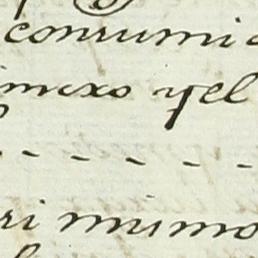 conrumi
imexo y el
- - - - - -
ri mismo